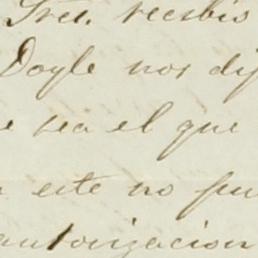 Sres. recibis
Doyle nos dij
e sea el que
este no fu
autorizacion